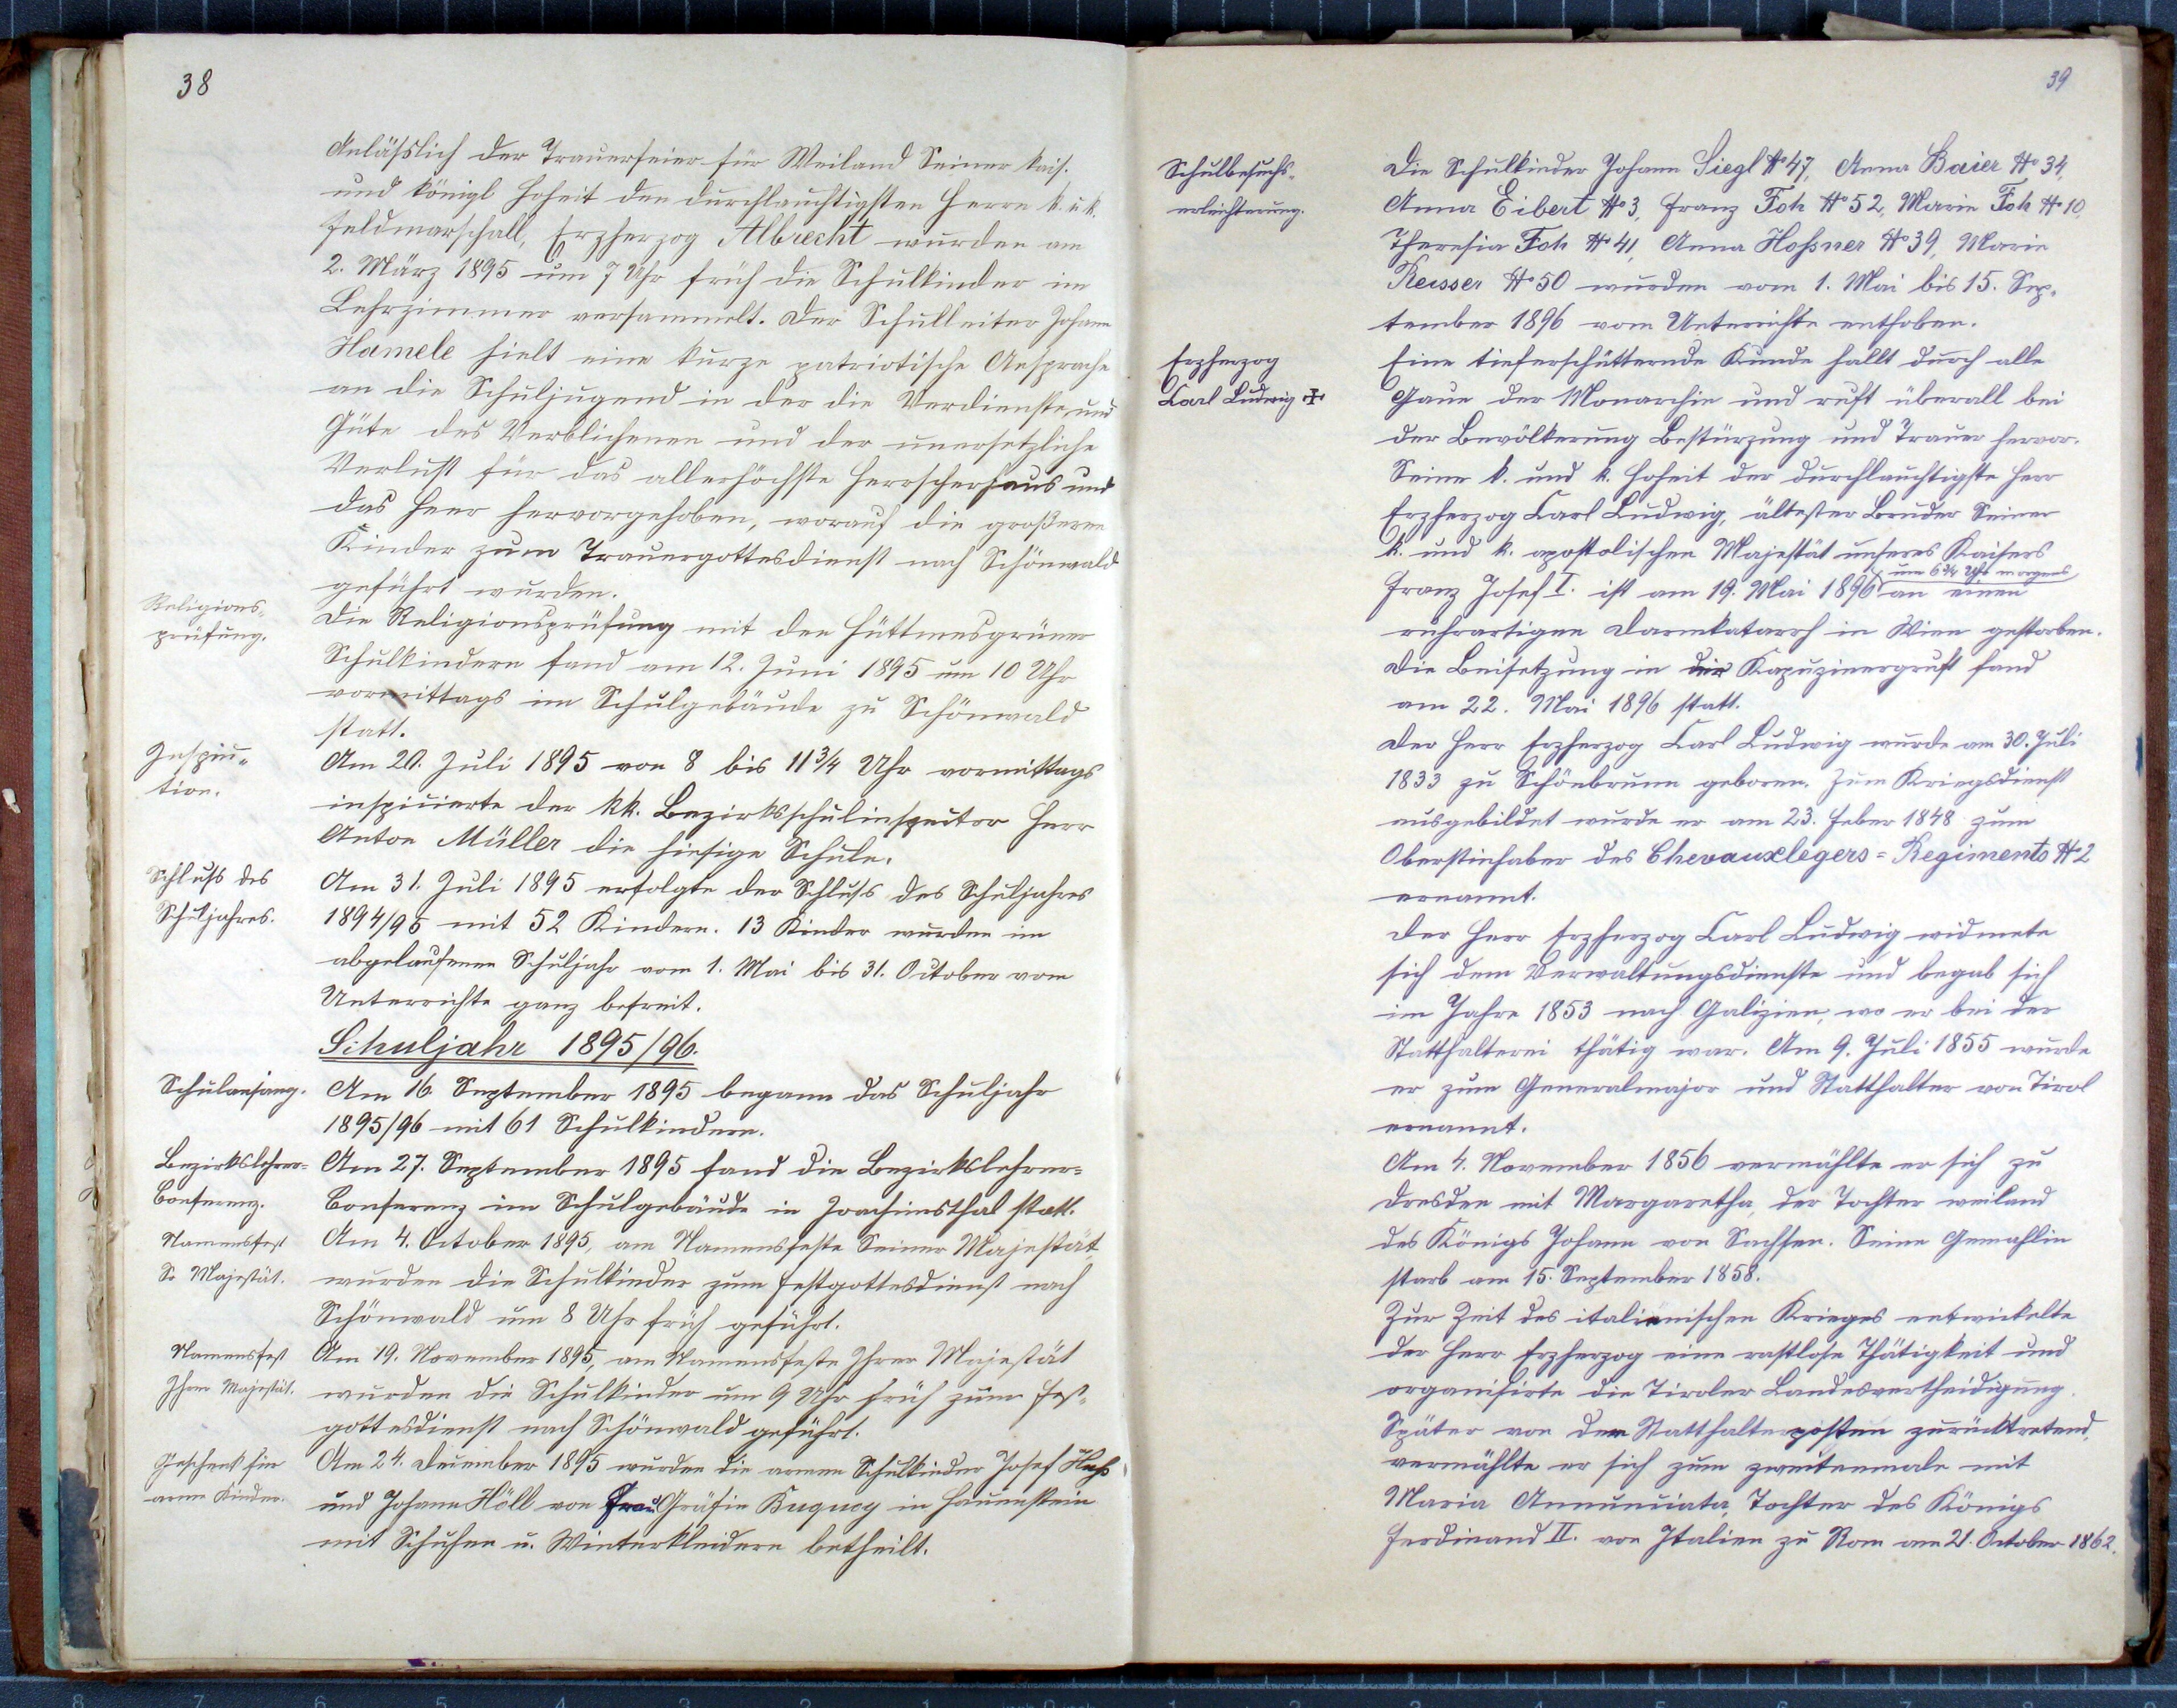 38
Anläßlich der Trauerfeier für Weiland Seiner kais.
und königl Hoheit den durchlauchtigsten Herrn k. u. k.
Feldmarschall, Erzherzog Albrecht wurden am
2. März 1895 um 7 Uhr früh die Schulkinder im
Lehrzimmer versammelt. Der Schulleiter Johann
Hamele hielt eine kurze patriotische Ansprache
an die Schuljugend in der die Verdienste und
Güte des Verblichenen und der unersetzliche
Verlust für das allerhöchste Herrscherhaus und
das Heer hervorgehoben, worauf die großeren
Kinder zum Trauergottesdienst nach Schönwald
geführt wurden.
Religions-
prüfung.
Die Religionsprüfung mit den Hüttmesgrüner
Schulkindern fand am 12. Juni 1895 um 10 Uhr
vormittags im Schulgebäude zu Schönwald
statt.
Inspic-
tion.
Am 20. Juli 1895 von 8 bis 11 3/4 Uhr vormittags
inspicierte der kk. Bezirksschulinspector Herr
Anton Müller die hiesige Schule.
Schluß des
Schuljahres.
Am 31. Juli 1895 erfolgte der Schluß des Schuljahres
1894/95 mit 52 Kindern. 13 Kinder wurden im
abgelaufenen Schuljahr vom 1. Mai bis 31. October vom
Unterrichte ganz befreit.
Schuljahr 1895/96.
Schulanfang.
Am 16. September 1895 begann das Schuljahr
1895/96 mit 61 Schulkindern.
Bezirkslehrer-
Conferenz.
Am 27. September 1895 fand die Bezirkslehrer-
Conferenz im Schulgebäude in Joachimsthal statt.
Namensfest
Sr Majestät.
Am 4. October 1895, am Namensfeste Seiner Majestät
wurden die Schulkinder zum Festgottesdienst nach
Schönwald um 8 Uhr früh geführt.
Namensfest
Ihrer Majestät.
Am 19. November 1895, am Namensfeste Ihrer Majestät
wurden die Schulkinder um 9 Uhr früh zum Fest-
gottesdienst nach Schönwald geführt.
Geschenk für
arme Kinder.
Am 24. December 1895 wurden die armen Schulkinder Josef
und Johann Höll von Frau Gräfin Buquoy in Hauenstein
mit Schuhen u. Winterkleidern betheilt.
39
Schulbesuchs-
erleichterung.
Die Schulkinder Johann Siegl No 47, Anna Baier No 34,
Anna Eibert No 3, Franz Foh No 52, Marie Foh No 10,
Theresia Foh No 41, Anna Hoßner No 39, Marie
Reisser No 50 wurden vom 1. Mai bis 15. Sep-
tember 1896 vom Unterrichte enthoben.
Erzherzog
Carl Ludwig ✠
Eine tieferschütternde Kunde hallt durch alle
Gaue der Monarchie und ruft überall bei
der Bevölkerung Bestürzung und Trauer hervor.
Seine k. und k. Hoheit der durchlauchtigste Herr
Erzherzog Carl Ludwig, ältester Bruder Seiner
k. und k. apostolischen Majestät unseres Kaisers
um 6 3/4 Uhr morgens
Franz Josef I. ist am 19. Mai 1896 an einen
ruhrartigen Darmkatarrh in Wien gestorben.
Die Beisetzung in der Kapuzinergruft fand
am 22. Mai 1896 statt.
Der Herr Erzherzog Carl Ludwig wurde am 30. Juli
1833 zu Schönbrunn geboren. Zum Kriegsdienst
ausgebildet wurde er am 23. Feber 1848 zum
Oberstinhaber des Chevauxlegers-Regiments No 2
ernannt.
Der Herr Erzherzog Carl Ludwig widmete
sich dem Verwaltungsdienste und begab sich
im Jahre 1853 nach Galizien, wo er bei der
Statthalterei thätig war. Am 9. Juli 1855 wurde
er zum Generalmajor und Statthalter von Tirol
ernannt.
Am 4. November 1856 vermählte er sich zu
Dresden mit Margaretha, der Tochter weiland
des Königs Johann von Sachsen. Seine Gemahlin
starb am 15. September 1858.
Zur Zeit des italienischen Krieges entwickelte
der Herr Erzherzog eine rastlose Thätigkeit und
organisirte die Tiroler Landesvertheidigung.
Später von dem Statthalterposten zurücktretend,
vermählte er sich zum zweitenmale mit
Maria Annunciata, Tochter des Königs
Ferdinand II. von Italien zu Rom am 21. October 1862.